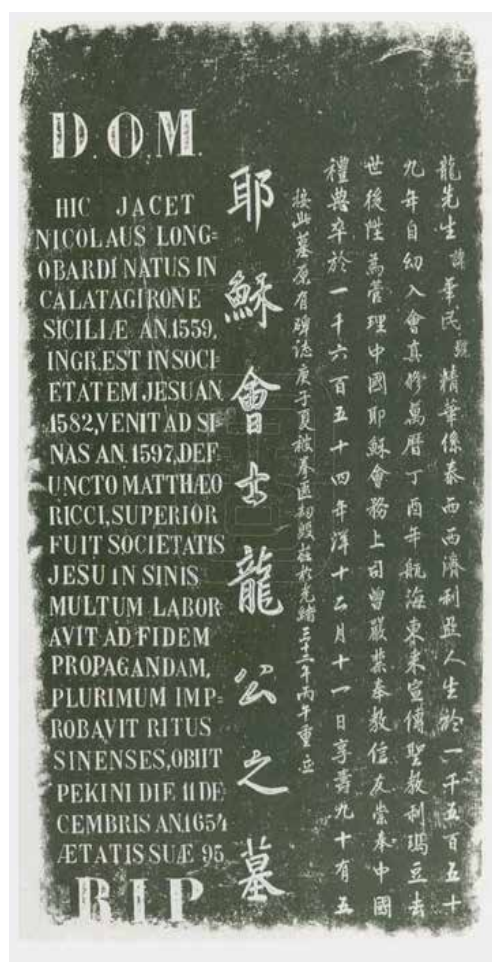 D.O.M.
HIC JACET
NICOLAUS LONG=
OBARDI NATUS IN
CALATAGIRONE
SICILIÆ AN.1559,
INGR.EST IN SOCI=
ETATEM JESU AN
1582,VENIT AD SI=
NAS AN.1597,DEF=
UNCTO MATTHÆO
RICCI,SUPERIOR
FUIT SOCIETATIS
JESU IN SINIS
MULTUM LABOR=
AVIT AD FIDEM
PROPAGANDAM,
PLURIMUM IMP=
ROBAVIT RITUS
SINENSES,OBIIT
PEKINI DIE 11 DE
CEMBRIS AN.1654
ÆTATIS SUÆ 95
RIP
龍先生諱華民號精華係泰西西濟利亞人生於一千五百五十
九年自幼入會真修萬曆丁酉年航海東來宣傳聖教利瑪豆去
世後性為管理中國耶穌會務上司曾嚴禁奉教信友崇奉中國
禮典卒於一千六百五十四年洋十二月十一日享壽九十有五
按此墓原有碑誌庚子夏被拳匪刧毀茲於光緒三十三年丙午重立
耶穌會士龍公之墓